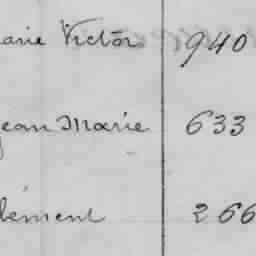 arie Victor 940
Jean Marie 633
lément 266